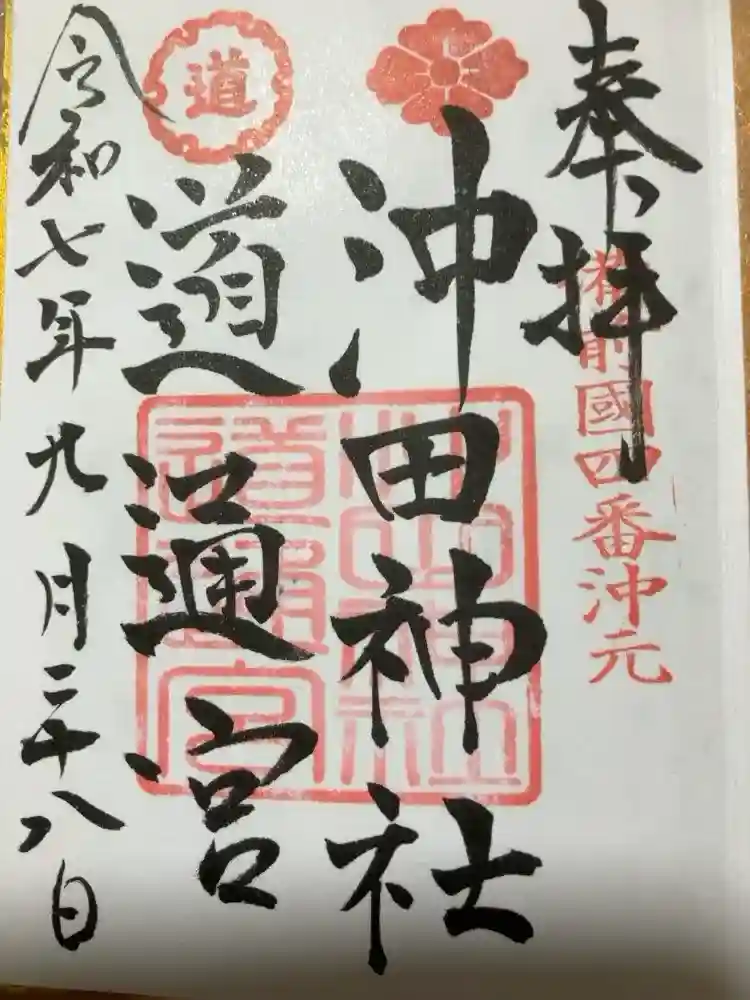 奉拝
備前國四番沖元
沖田神社
道通宮
令和七年九月二十八日
道
沖田神社
道通宮